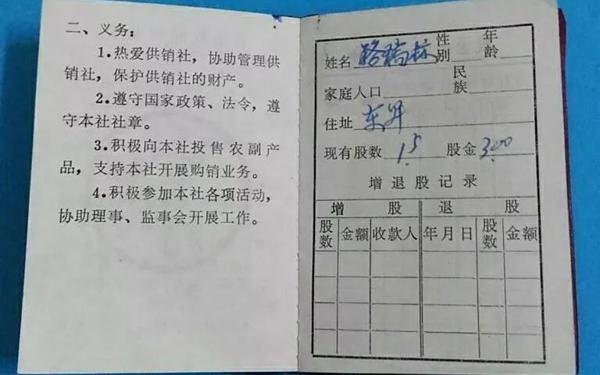 二、义务：
1.热爱供销社，协助管理供
销社，保护供销社的财产。
2.遵守国家政策、法令，遵
守本社社章。
3.积极向本社投售农副产
品，支持本社开展购销业务。
4.积极参加本社各项活动，
协助理事、监事会开展工作。
姓名 性别 年龄
家庭人口 民族
住址 东升
现有股数 1.5 股金 3.00
增退股记录
增股 退股
股数 金额 收款人 年月日 股数 金额